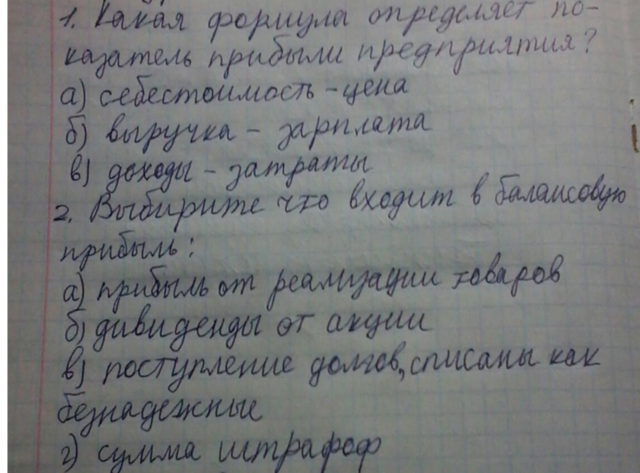 1. Какая формула определяет по-
казатель прибыли предприятия?
а) себестоимость - цена
б) выручка - зарплата
в) доходы - затраты
2. Выбирите что входит в балансовую
прибыль:
а) прибыль от реализации товаров
б) дивиденды от акции
в) поступление долгов, списаны как
безнадежные
г) сумма штрафоф